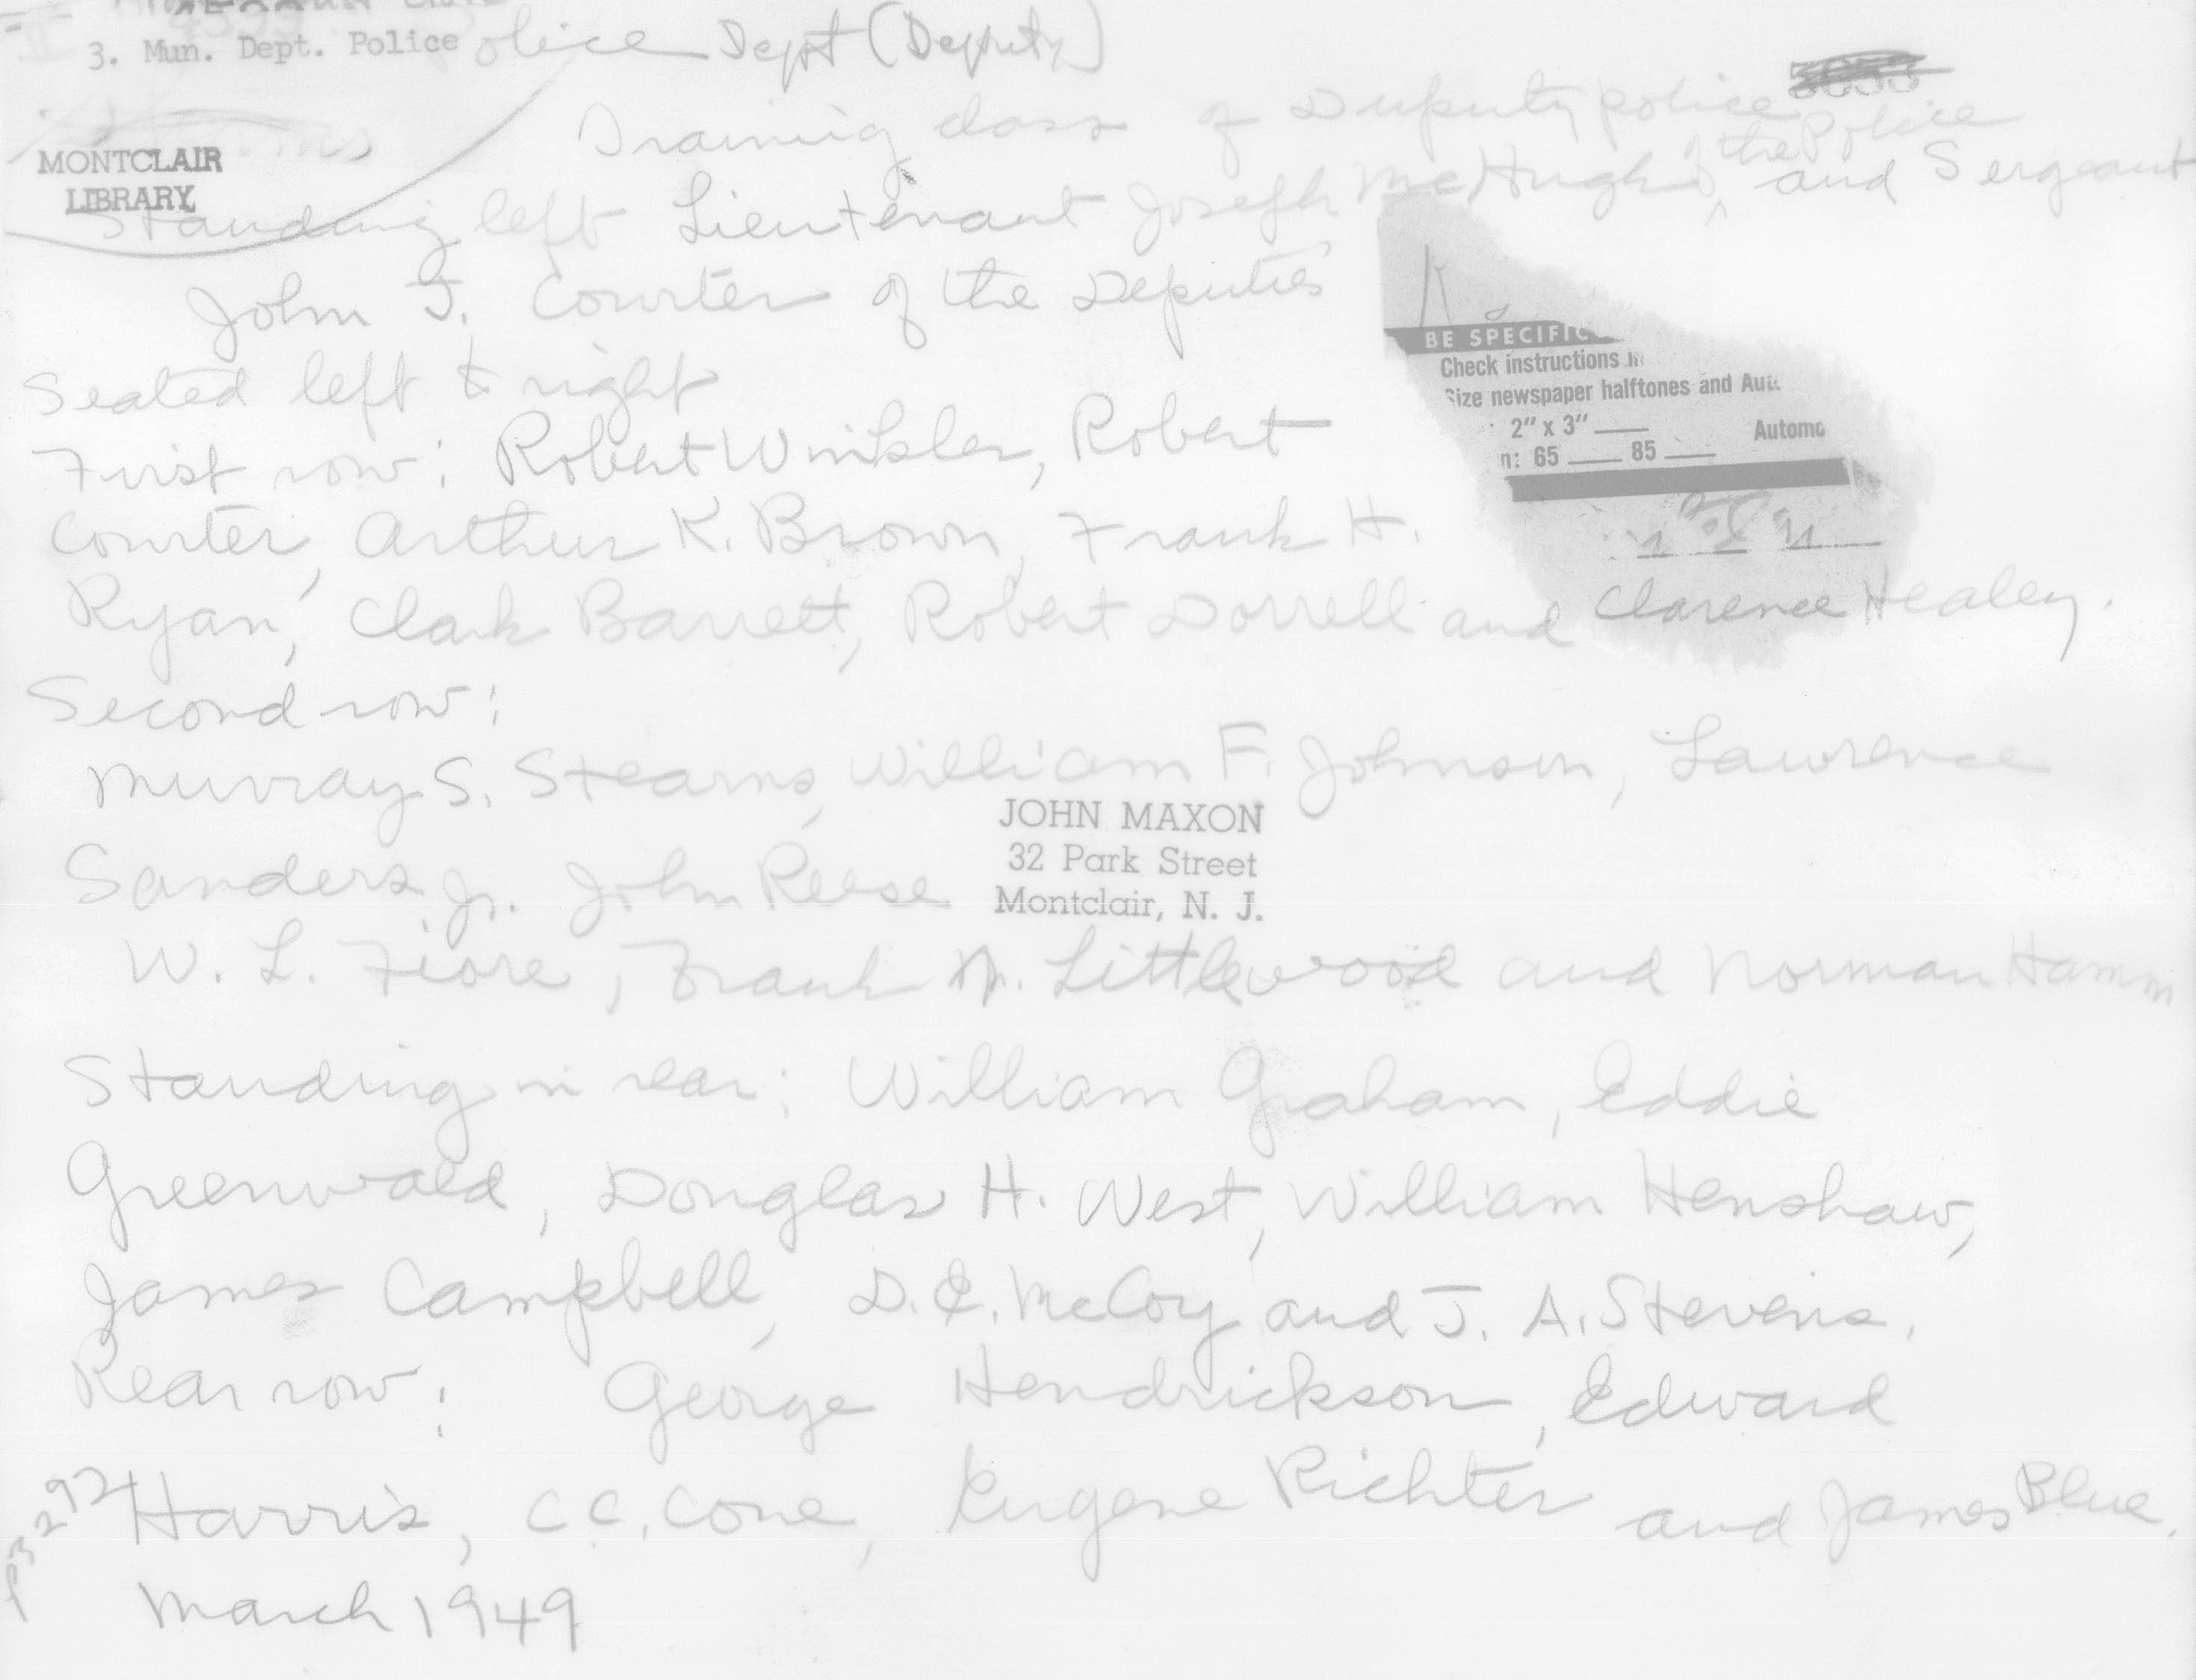 3. Mun. Dept. Police olice Dept (Deputy)
3033
Training class of Deputy police
MONTCLAIR
LIBRARY
Standing left Lieutenant Joseph McHugh of the Police and Sergeant
John J. Courter of the Deputies
BE SPECIFIC
Check instructions
Size newspaper halftones and
2" x 3" ___ Automo
n: 65 ___ 85 ___
Seated left to right
First row: Robert Winkler, Robert
Courter, Arthur K. Brown, Frank H.
Ryan, Clark Barrett, Robert Dorrell and Clarence Healey.
Second row:
Murray S. Stearns, William F. Johnson, Lawrence
Sanders Jr. John Reese
JOHN MAXON
32 Park Street
Montclair, N. J.
W. L. Fiore, Frank N. Littlewood and Norman Hamm
Standing in rear: William Graham, Eddie
Greenwald, Douglas H. West, William Henshaw,
James Campbell, D. E. McCoy and J. A. Stevens.
Rear row: George Hendrickson, Edward
Harris, C.C. Cone, Eugene Richter and James Blue.
P3292
March 1949